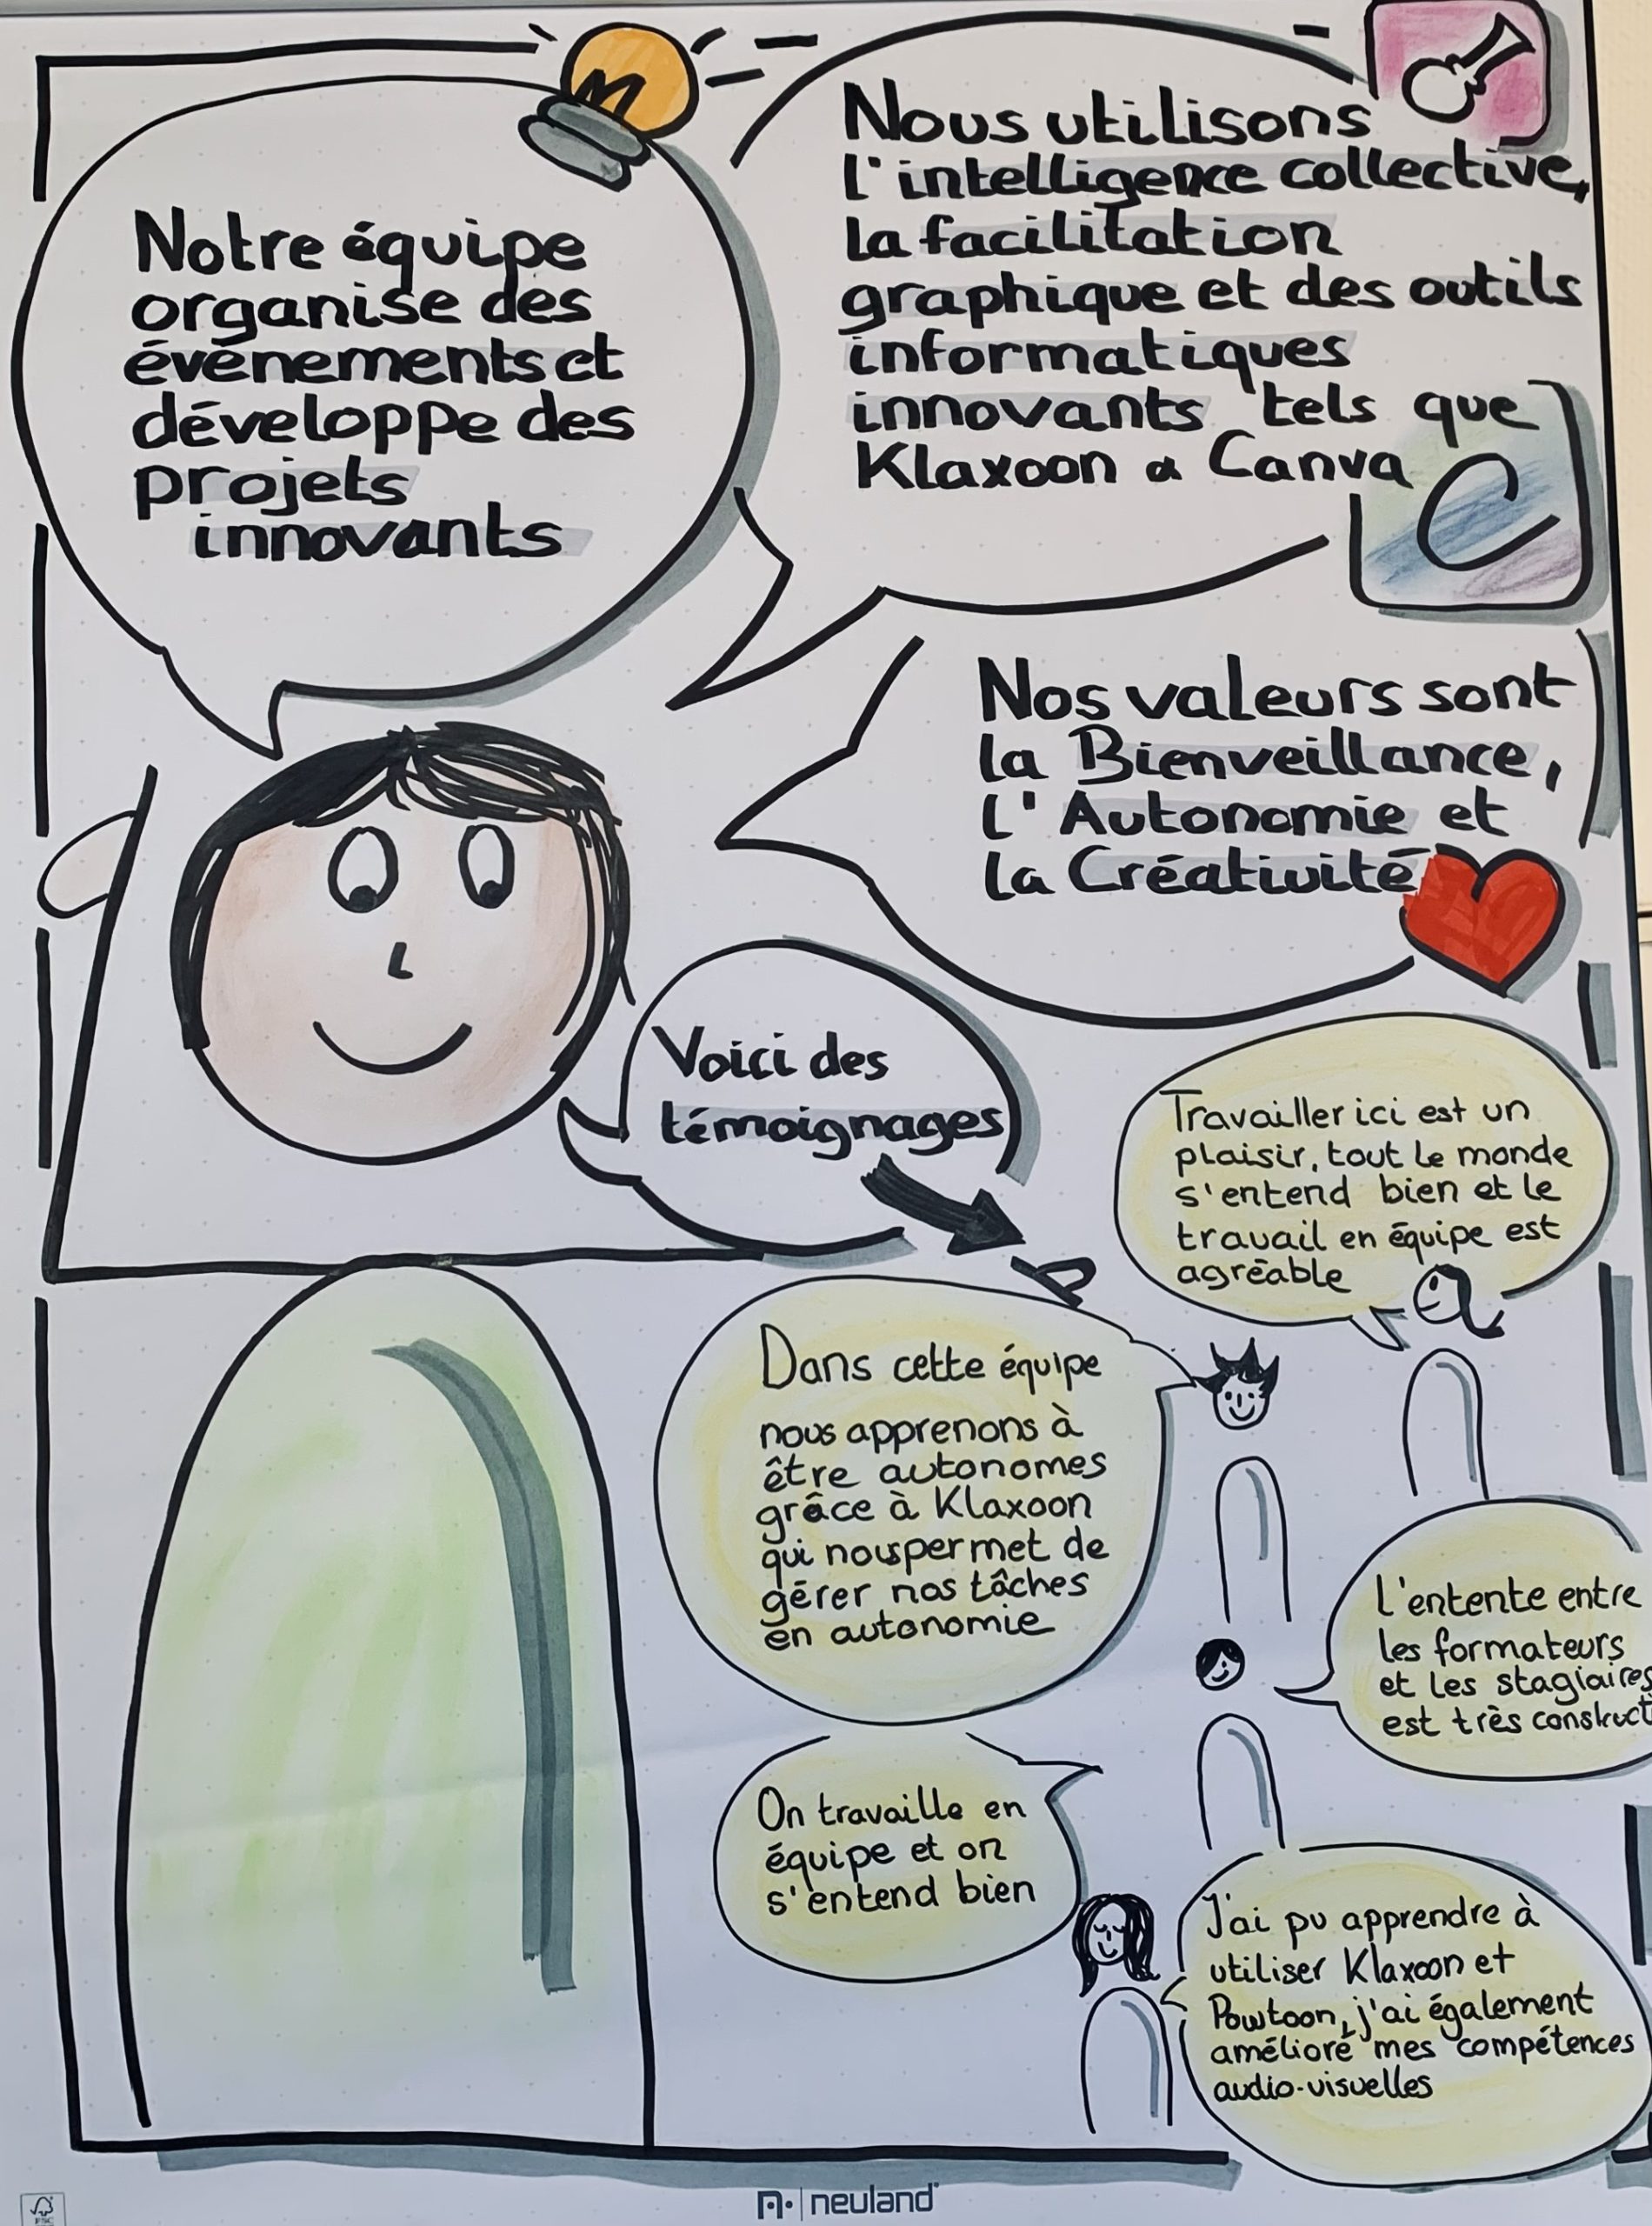 Notre équipe
organise des
événements et
développe des
projets
innovants
Nous utilisons
l'intelligence collective,
la facilitation
graphique et des outils
informatiques
innovants tels que
Klaxoon & Canva
C
Nos valeurs sont
la Bienveillance,
l'Autonomie et
la Créativité
Voici des
témoignages
Travailler ici est un
plaisir, tout le monde
s'entend bien et le
travail en équipe est
agréable
Dans cette équipe
nous apprenons à
être autonomes
grâce à Klaxoon
qui nous permet de
gérer nos tâches
en autonomie
L'entente entre
les formateurs
et les stagiaires
est très construct
On travaille en
équipe et on
s'entend bien
J'ai pu apprendre à
utiliser Klaxoon et
Powtoon, j'ai également
amélioré mes compétences
audio-visuelles
neuland
FSC